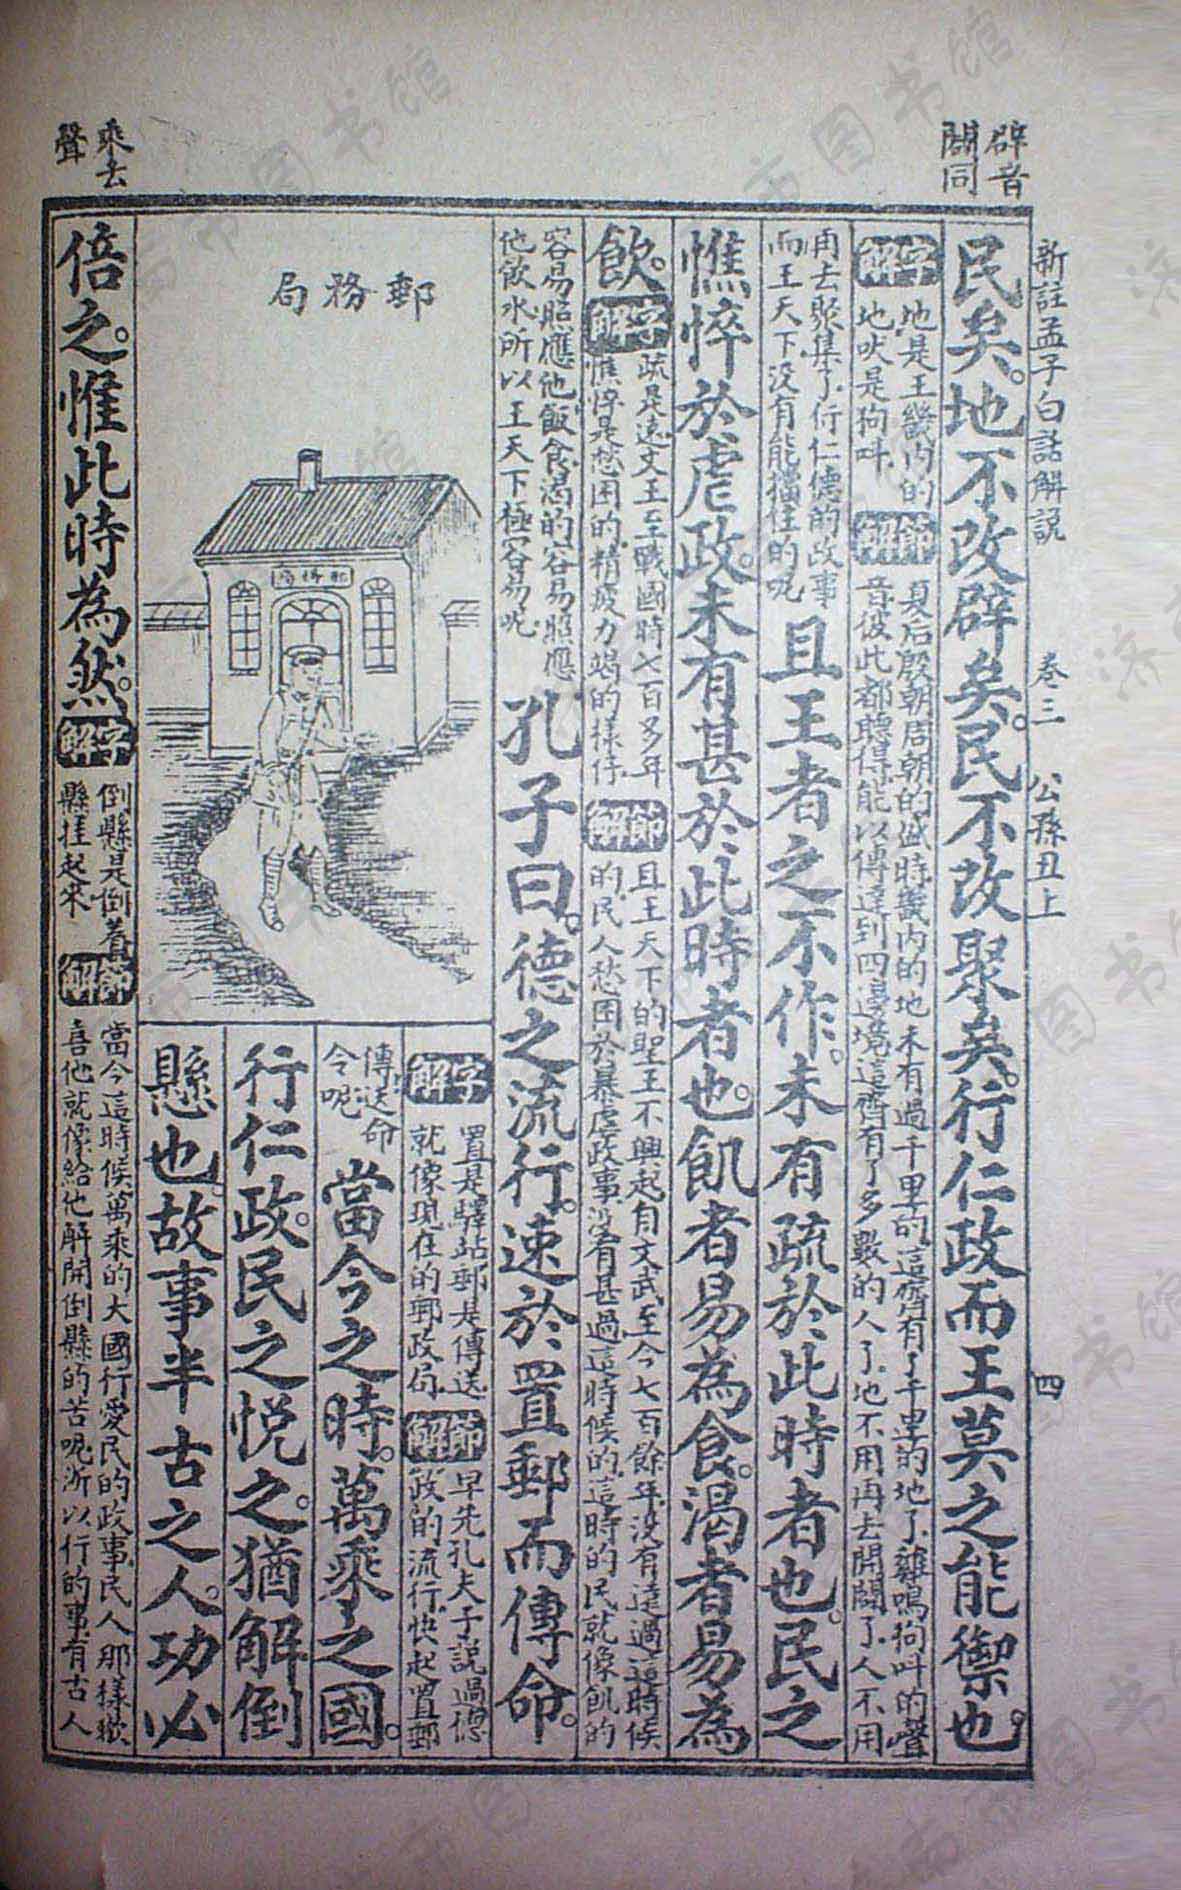 新註孟子白話解説　卷三　公孫丑上　四
辟音
闢同
民矣。地不改辟矣。民不改聚矣。行仁政而王莫之能禦也。
字解
地是王畿内的
地吠是狗叫
節解
夏后殷朝周朝的盛時畿内的地未有過千里的這齊有了千里的地了雞鳴狗叫的聲
音彼此都聽得能以傳達到四邊境這齊有了多數的人了地不用再去開闢了人不用
再去聚集了行仁德的政事
而王天下沒有能擋住的呢
且王者之不作。未有疏於此時者也。民之
憔悴於虐政。未有甚於此時者也。飢者易為食。渴者易為
飲。
字解
疏是遠文王至戰國時七百多年
憔悴是愁困的精疲力竭的樣仔
節解
且王天下的聖王不興起自文武至今七百餘年沒有遠過這時候
的民人愁困於暴虐政事沒有甚過這時候的這時的民就像飢的
容易照應他飯食渴的容易照應
他飲水所以王天下極容易呢
孔子曰。德之流行。速於置郵而傳命。
字解
置是驛站郵是傳送
就像現在的郵政局
節解
早先孔夫子説過德
政的流行快起置郵
傳送命
令呢
當今之時。萬乘之國。
行仁政。民之悦之。猶解倒
懸也。故事半古之人。功必
郵務局
郵務局
乘去
聲
倍之。惟此時為然。
字解
倒縣是倒着
縣挂起來
節解
當今這時候萬乘的大國行愛民的政事民人那樣歡
喜他就像給他解開倒縣的苦呢所以行的事有古人